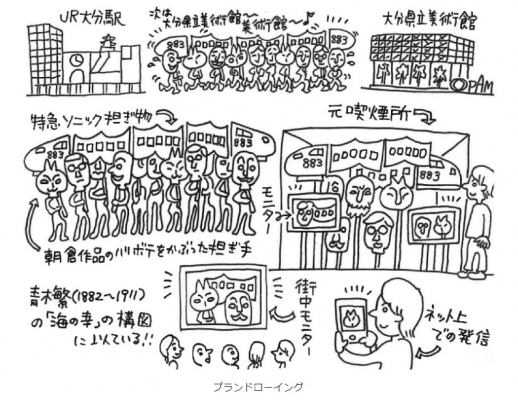 JR大分駅
次は〜
大分県立美術館〜
美術館〜♪
883
883
大分県立美術館
OPAM
特急ソニック担ぎ物
883
883
朝倉作品のハリボテをかぶった担ぎ手
元喫煙所
883
883
モニター
青木繁(1882〜1911)
の「海の幸」の構図
に似ている!!
街中モニター
ネット上
での発信
プランドローイング